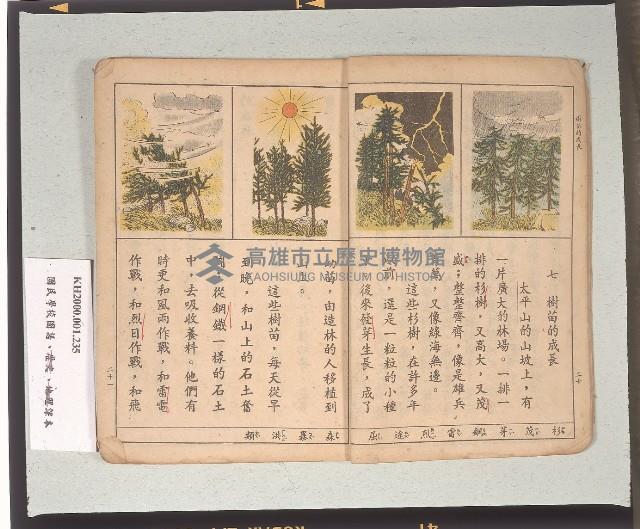 樹苗的成長
七 樹苗的成長
太平山的山坡上，有
一片廣大的林場。一排一
排的杉樹，又高大，又茂
盛；整整齊齊，像是雄兵
萬，又像綠海無邊。
這些杉樹，在許多年
前，還是一粒粒的小種
後來發芽生長，成了
二十
杉 茂 芽 鋼 雷 烈 途 屈
幼苗，由造林的人移植到
山上。
這些樹苗，每天從早
到晚，和山上的石土奮
鬥，從鋼鐵一樣的石土
中，去吸收養料。他們有
時更和風雨作戰，和雷電
作戰，和烈日作戰，和飛
二十一
森 暴 洪 類
高雄市立歷史博物館
KAOHSIUNG MUSEUM OF HISTORY
KH2000.001.235
國民學校國語、